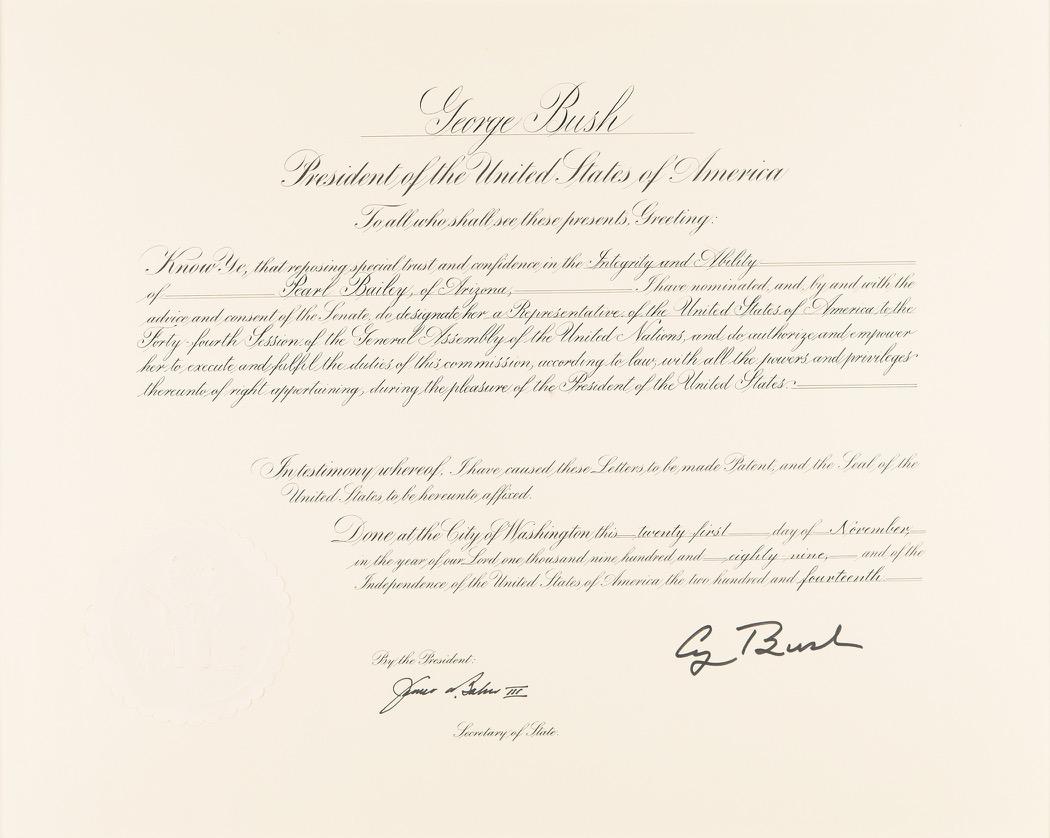 George Bush
President of the United States of America
To all who shall see these presents, Greeting:
Know Ye, that reposing special trust and confidence in the Integrity and Ability
of Pearl Bailey, of Arizona, I have nominated, and, by and with the
advice and consent of the Senate, do designate her a Representative of the United States of America to the
Forty-fourth Session of the General Assembly of the United Nations, and do authorize and empower
her to execute and fulfil the duties of this commission, according to law, with all the powers and privileges
thereunto of right appertaining, during the pleasure of the President of the United States.
In testimony whereof, I have caused these Letters to be made Patent, and the Seal of the
United States to be hereunto affixed.
Done at the City of Washington this twenty first day of November,
in the year of our Lord one thousand nine hundred and eighty nine, and of the
Independence of the United States of America the two hundred and fourteenth.
G Bush
By the President:
James A. Baker III
Secretary of State.